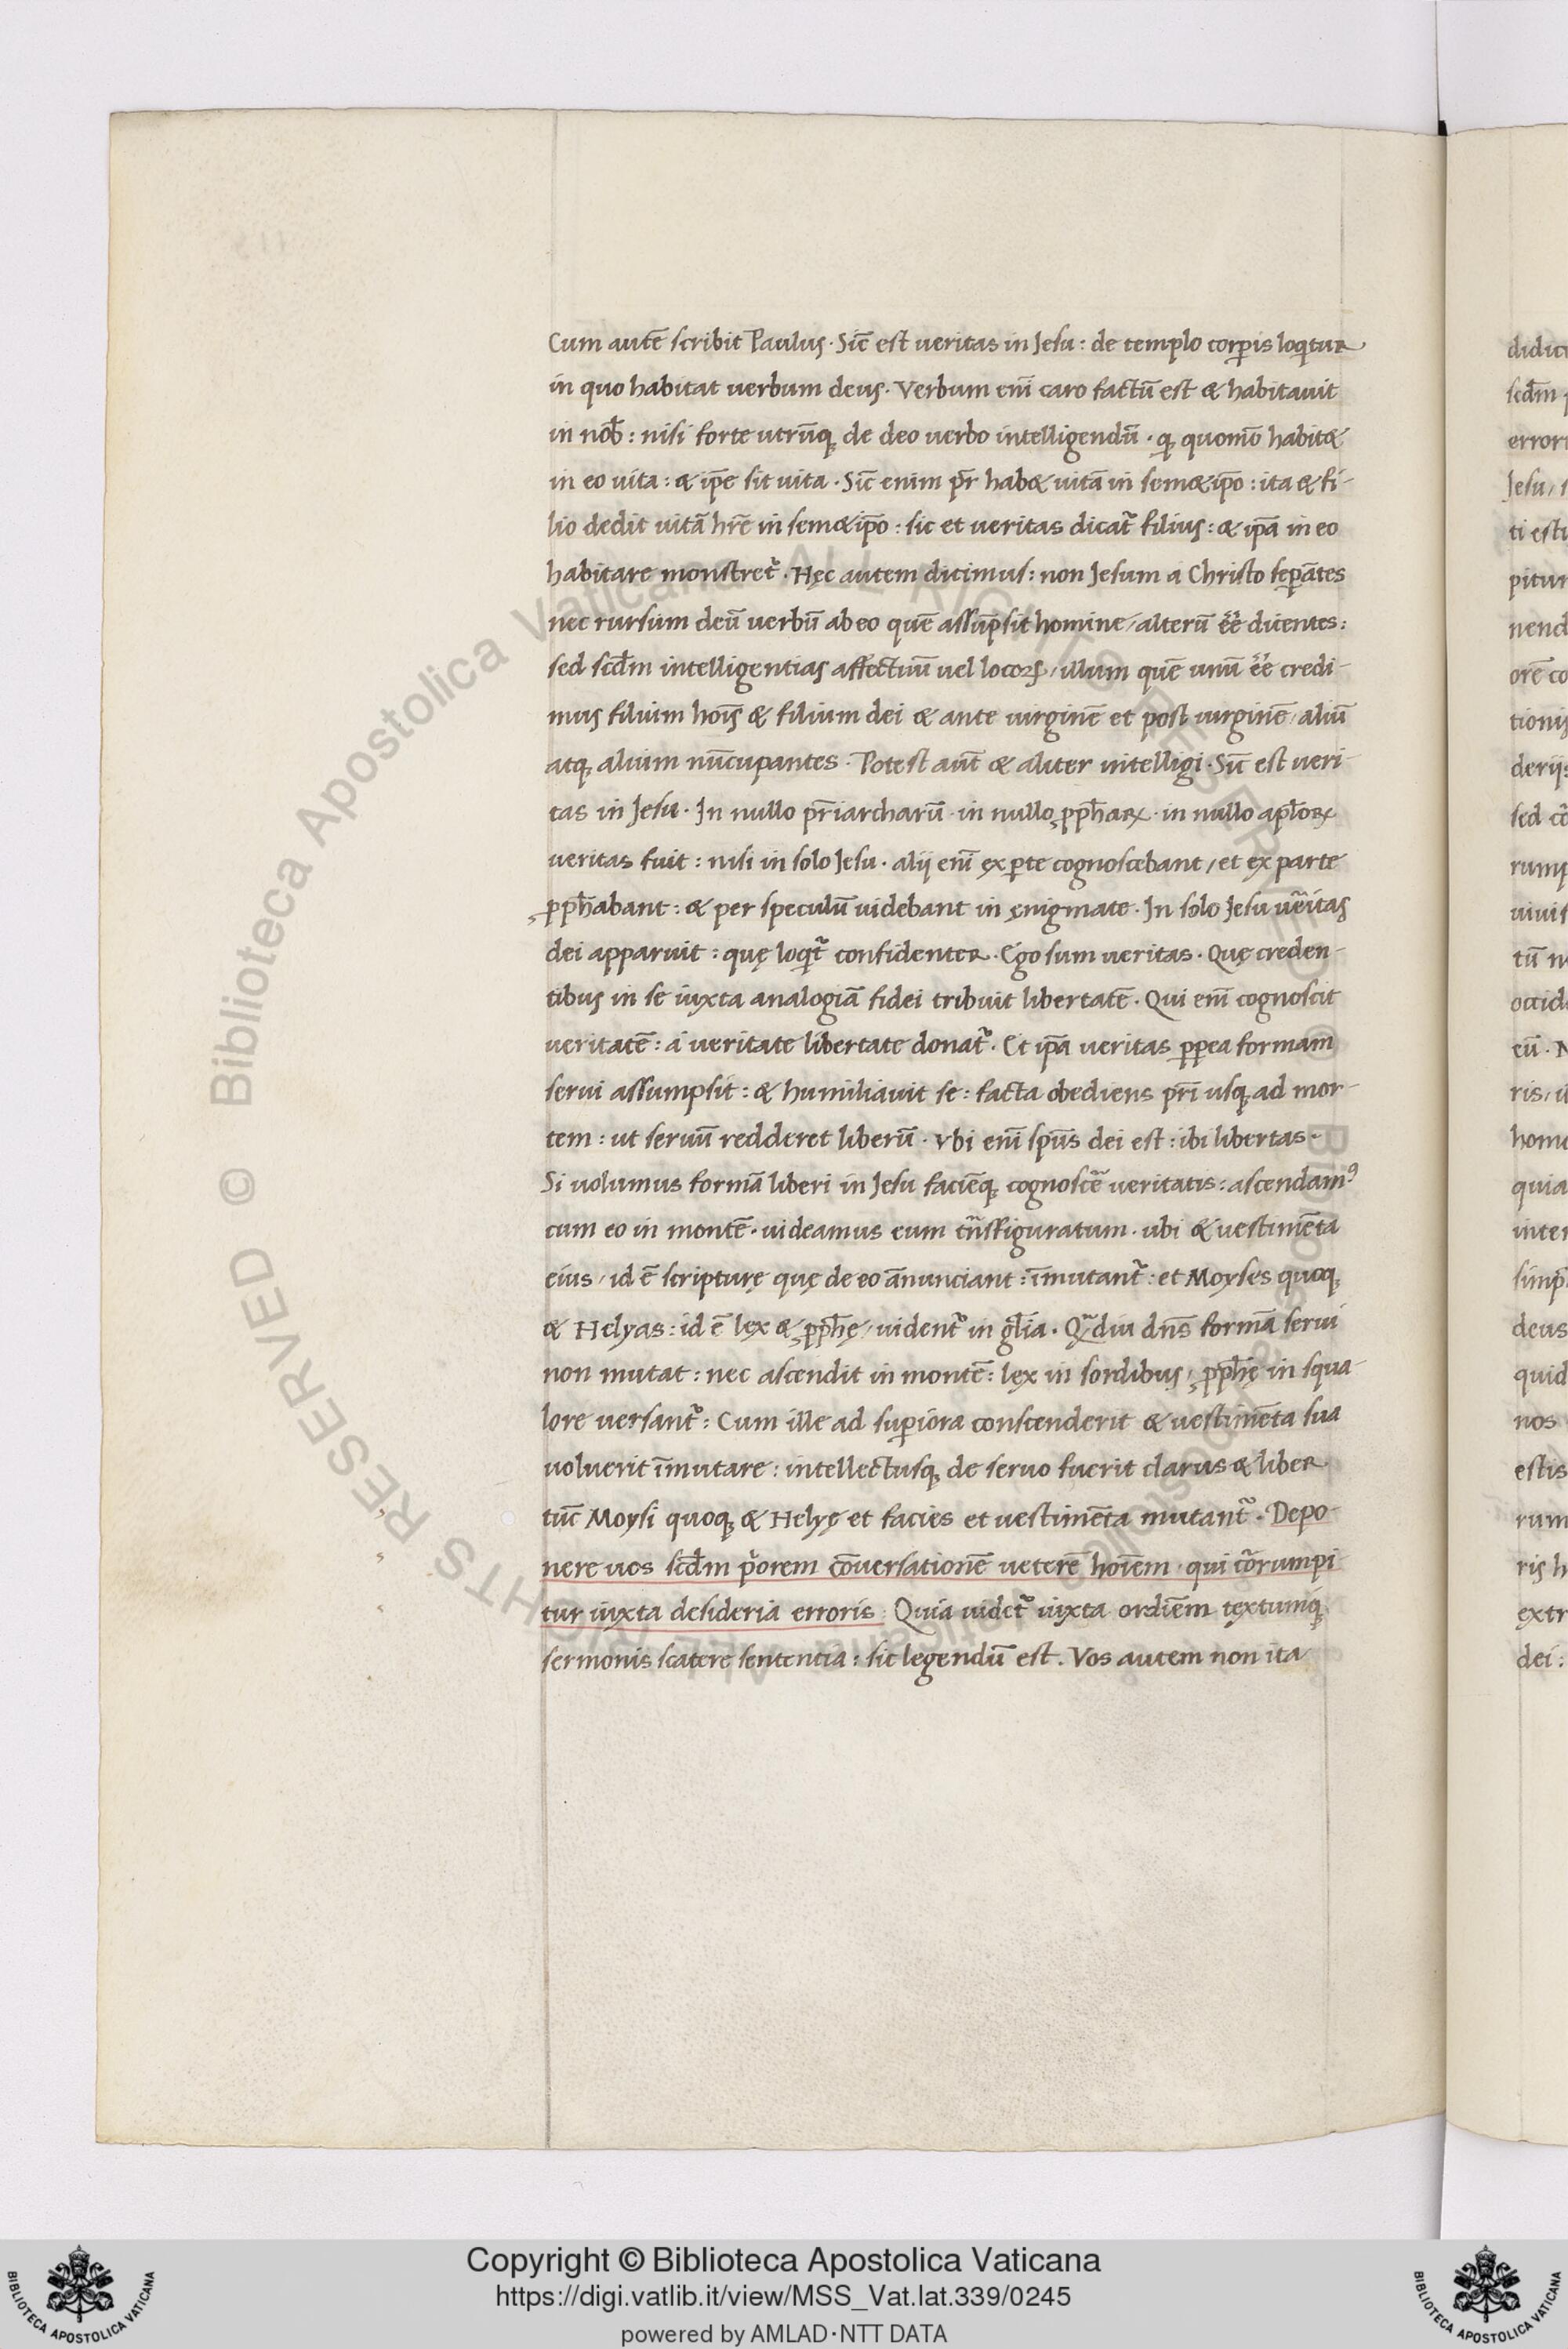 Cum autē scribit Paulus · Sic̄ est ueritas in Jesu : de templo corꝑis loqͥtur
in quo habitat uerbum deus · Verbum em̄ caro factū est & habitauit
in nob̄ : nisi forte utrūqꝫ de deo uerbo intelligendū · qꝫ quomō habit&
in eo uita : & ip̄e sit uita · Sic̄ enim pr̄ hab& uitā in sem&ip̄o : ita & fi-
lio dedit uitā hr̄e in sem&ip̄o : sic et ueritas dicat᷑ filius : & ip̄a in eo
habitare monstret᷑ · Hęc autem dicimus : non Jesum a Christo seꝑātes
nec rursum deū uerbū ab eo quē assūpsit homine / alterū ēē dicentes :
sed scd̄m intelligentias affectuū uel locoꝝ / illum quē unū ēē credi-
mus filium hoīs & filium dei & ante uirginē et post uirginē / aliū
atqꝫ alium nūcupantes · Potest aut̄ & aliter intelligi · Sic̄ est ueri-
tas in Jesu · In nullo pr̄iarcharū · in nullo ꝓph̄aꝝ · in nullo apl̄oꝝ
ueritas fuit : nisi in solo Jesu · alij em̄ ex ꝑte cognoscebant / et ex parte
ꝓph̄abant : & per speculū uidebant in ęnigmate · In solo Jesu uēitas
dei apparuit : quę loqͥt᷑ confidenter · Ego sum ueritas · Quę creden-
tibus in se iuxta analogiā fidei tribuit libertatē · Qui em̄ cognoscit
ueritatē : a ueritate libertate donat᷑ · Et ip̄a ueritas ꝓpea formam
serui assumpsit : & humiliauit se : facta obediens pr̄i usqꝫ ad mor-
tem : ut seruū redderet liberū · Vbi em̄ sp̄us dei est : ibi libertas ·
Si uolumus formā liberi in Jesu faciēqꝫ cognoscē᷑ ueritatis : ascendamꝰ
cum eo in montē · uideamus eum tn̄sfiguratum · ubi & uestimēta
eius / id ē scripturę quę de eo ānunciant : īmutant᷑ : et Moyses quoqꝫ
& Helyas : id ē lex & ꝓph̄ę / uident᷑ in gl̄ia · Qͣdiu dn̄s formā serui
non mutat : nec ascendit in montē : lex in sordibus / ꝓph̄ę in squa-
lore uersant᷑ : Cum ille ad suꝑiora conscenderit & uestimēta sua
uoluerit īmutare : intellectusqꝫ de seruo fuerit clarus & liber
tūc Moysi quoqꝫ & Helyę et facies et uestimēta mutant᷑ · Depo-
nere uos scd̄m pͥorem cōuersationē ueterē hoīem · qui cōrumpi-
tur iuxta desideria erroris · Quia uidet᷑ iuxta ordīem textumqꝫ
sermonis scatere sententia : sic legendū est . Vos autem non ita
didici
scd̄m
error
Jesu / s
ti esti
pitur
nend
orē co
tionis
derijs
sed
rump
uiuis
tū n
occid
eū · N
ris / u
homo
quia
inter
simp
deus
quid
nos
estis
rum
ris h
extr
dei :
© Biblioteca Apostolica Vaticana ALL RIGHTS RESERVED
Copyright © Biblioteca Apostolica Vaticana
https://digi.vatlib.it/view/MSS_Vat.lat.339/0245
powered by AMLAD·NTT DATA
BIBLIOTECA APOSTOLICA VATICANA
BIBLIOTECA APOSTOLICA VATICANA